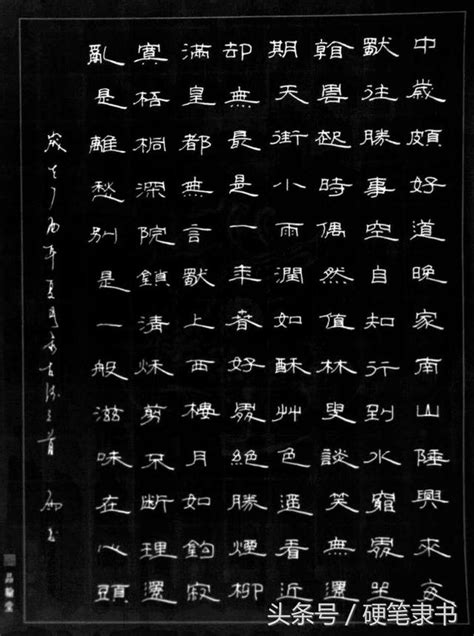 中歲頗好道晚家南山陲興來每
獨往勝事空自知行到水窮處坐
看雲起時偶然值林叟談笑無還
期天街小雨潤如酥艸色遥看近
却無最是一年春好處絕勝煙柳
滿皇都無言獨上西樓月如鉤寂
寞梧桐深院鎖清秋剪不斷理還
亂是離愁別是一般滋味在心頭
歲在丁酉年夏月書古詩三首
品翰堂
头条号 / 硬笔隶书